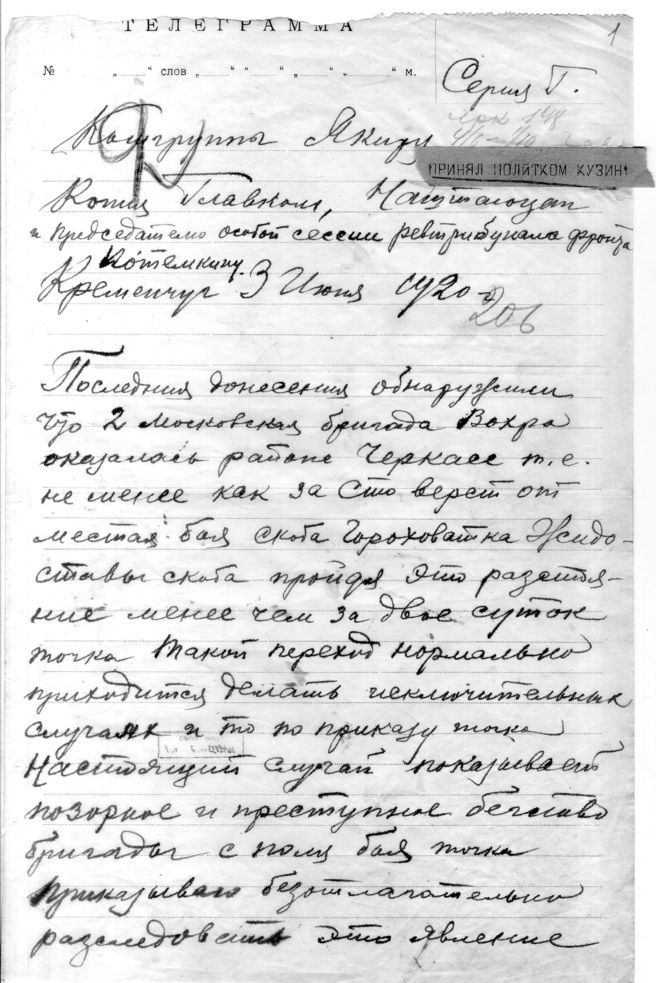 ТЕЛЕГРАММА
1
№ „ “ слов „ “ “ “ „ “ „ “ м.
Серия Г.
Комгруппы Якиру
ПРИНЯЛ ПОЛИТКОМ КУЗИН
Копия Главком,
и председателю особой сессии ревтрибунала фронта
Потемкину.
Кременчуг 3 Июня 1920 г
206
Последния донесения обнаружили
что 2 Московская бригада Вохра
оказалась районе Черкасс т.е.
не менее как за сто верст от
места боя скоба Гороховатка Жидо-
ставы скоба пройдя это разстоя-
ние менее чем за двое суток
точка Такой переход нормально
приходится делать исключительных
случаях и то по приказу точка
Настоящий случай показывает
позорное и преступное бегство
бригады с поля боя точка
Приказываю безотлагательно
разследовать это явление